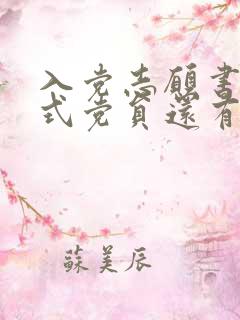 入党志愿书
式党员还有
蘇美辰